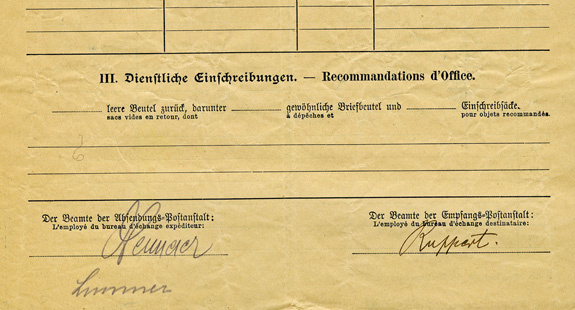 III. Dienstliche Einschreibungen. — Recommandations d'Office.
leere Beutel zurück, darunter gewöhnliche Briefbeutel und Einschreibsäcke.
sacs vides en retour, dont à dépêches et pour objets recommandés.
6
Der Beamte der Absendungs-Postanstalt: Der Beamte der Empfangs-Postanstalt:
L'employé du bureau d'échange expéditeur: L'employé du bureau d'échange destinataire:
Ruppert.